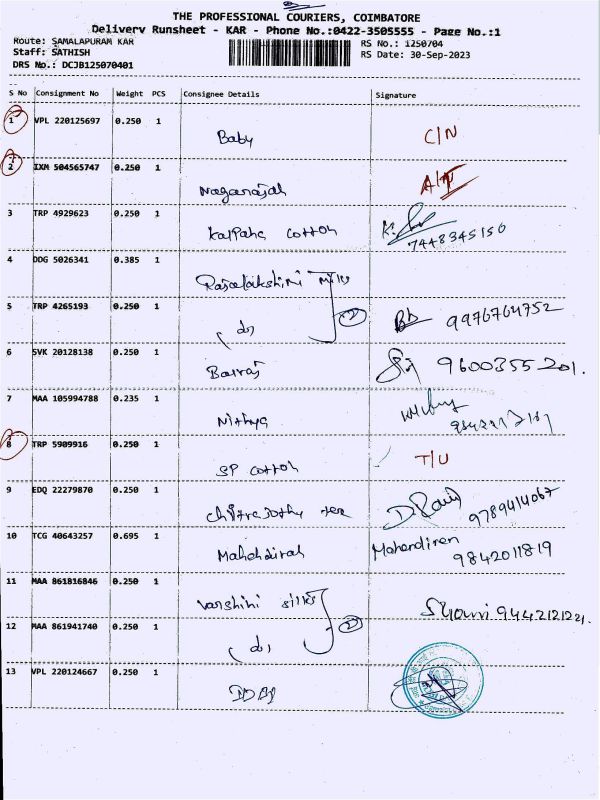 THE PROFESSIONAL COURIERS, COIMBATORE
Delivery Runsheet - KAR - Phone No.:0422-3505555 - Page No.:1
Route: SAMALAPURAM KAR
RS No.: 1250704
Staff: SATHISH
RS Date: 30-Sep-2023
DRS No.: DCJB125070401
S No Consignment No Weight PCS Consignee Details Signature
1 VPL 220125697 0.250 1
Baby C/N
2 IXM 504565747 0.250 1
Nagarajah
3 TRP 4929623 0.250 1
Kalpana cotton 7448345150
4 DDG 5026341 0.385 1
Rajalakshimi mills
5 TRP 4265193 0.250 1
(do) 2 9976764752
6 SVK 20128138 0.250 1
Balraj 9600355201.
7 MAA 105994788 0.235 1
Nithya
8 TRP 5909916 0.250 1
SP cotton T/U
9 EDQ 22279870 0.250 1
9789414067
10 TCG 40643257 0.695 1
Mahendiran Mahendiren
9842011819
11 MAA 861816846 0.250 1
Varshini silks 9442121221.
12 MAA 861941740 0.250 1
(do) 2
13 VPL 220124667 0.250 1